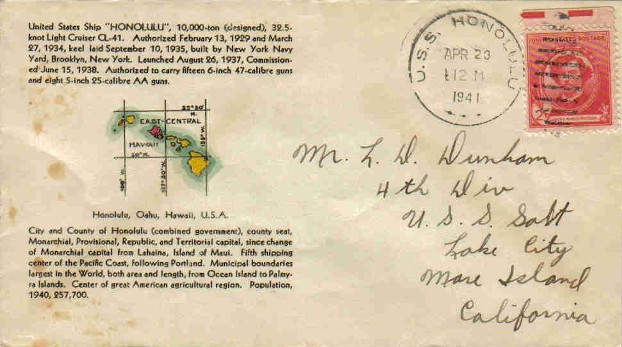 United States Ship "HONOLULU", 10,000-ton (designed), 32.5-
knot Light Cruiser CL-41. Authorized February 13, 1929 and March
27, 1934, keel laid September 10, 1935, built by New York Navy
Yard, Brooklyn, New York. Launched August 26, 1937, Commission-
ed June 15, 1938. Authorized to carry fifteen 6-inch 47-calibre guns
and eight 5-inch 25-calibre AA guns.
U.S.S. HONOLULU
APR 23
12 M
1941
EAST-CENTRAL
HAWAII
Honolulu, Oahu, Hawaii, U.S.A.
City and County of Honolulu (combined government), county seat,
Monarchial, Provisional, Republic, and Territorial capital, since change
of Monarchial capital from Lahaina, Island of Maui. Fifth shipping
center of the Pacific Coast, following Portland. Municipal boundaries
largest in the World, both area and length, from Ocean Island to Palmy-
ra Islands. Center of great American agricultural region. Population,
1940, 257,700.
Mr. L. D. Dunham
4th Div
U. S. S. Salt
Lake City
Mare Island
California